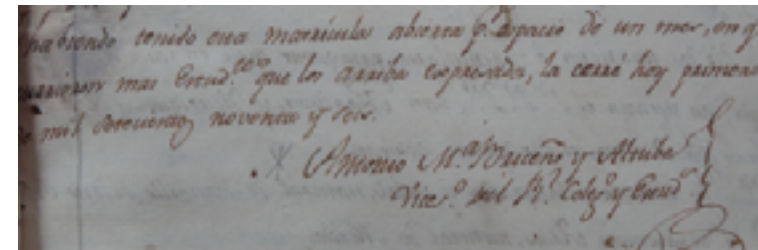 habiendo tenido esta matricula abierta p.r espacio de un mes, en q
currieron mas Estud.tes que los arriba expresados, la cerre hoy primero
de mil setecientos noventa y seis.
Antonio M.a Briceño y Altube
Vice R.r del R.l Coleg.o y Estud.s